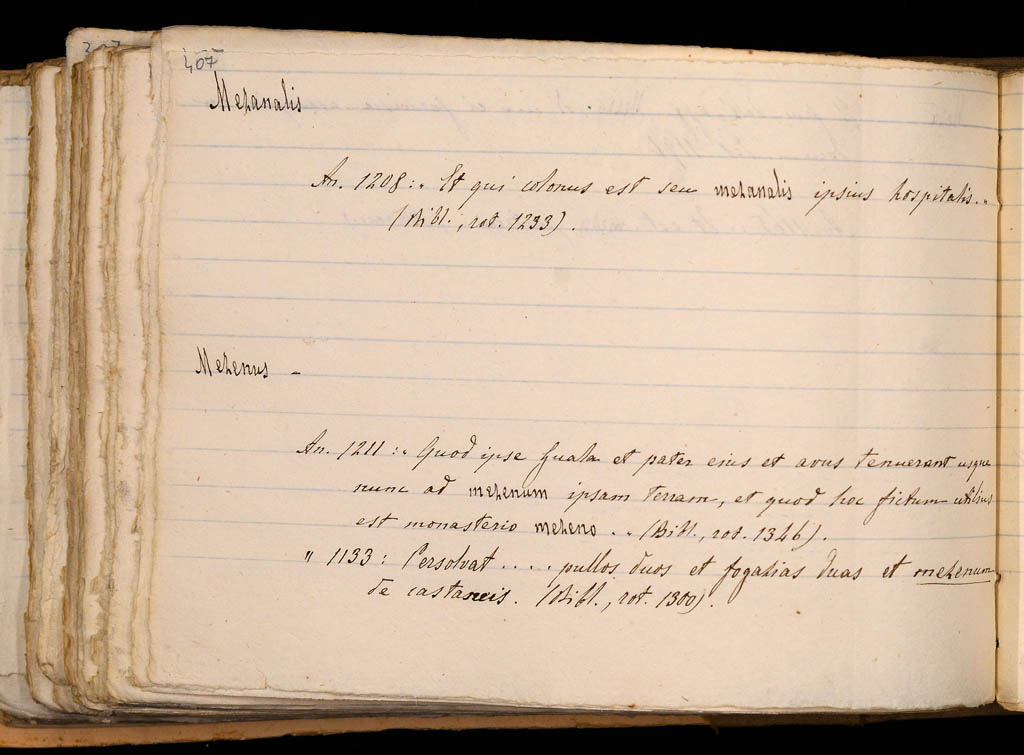 407
Mezanalis
An. 1208:. Et qui colonus est seu mezanalis ipsius hospitalis..
(Bibl., rot. 1233).
Mezenus -
An. 1211:. Quod ipse Guala et pater eius et avus tenuerant usque
nunc ad mezenum ipsam terram, et quod hoc fictum utilius
est monasterio mezeno .. (Bibl., rot. 1346).
" 1133: Persolvat .... pullos duos et fogatias duas et mezenum
de castaneis. (Bibl., rot. 1300).